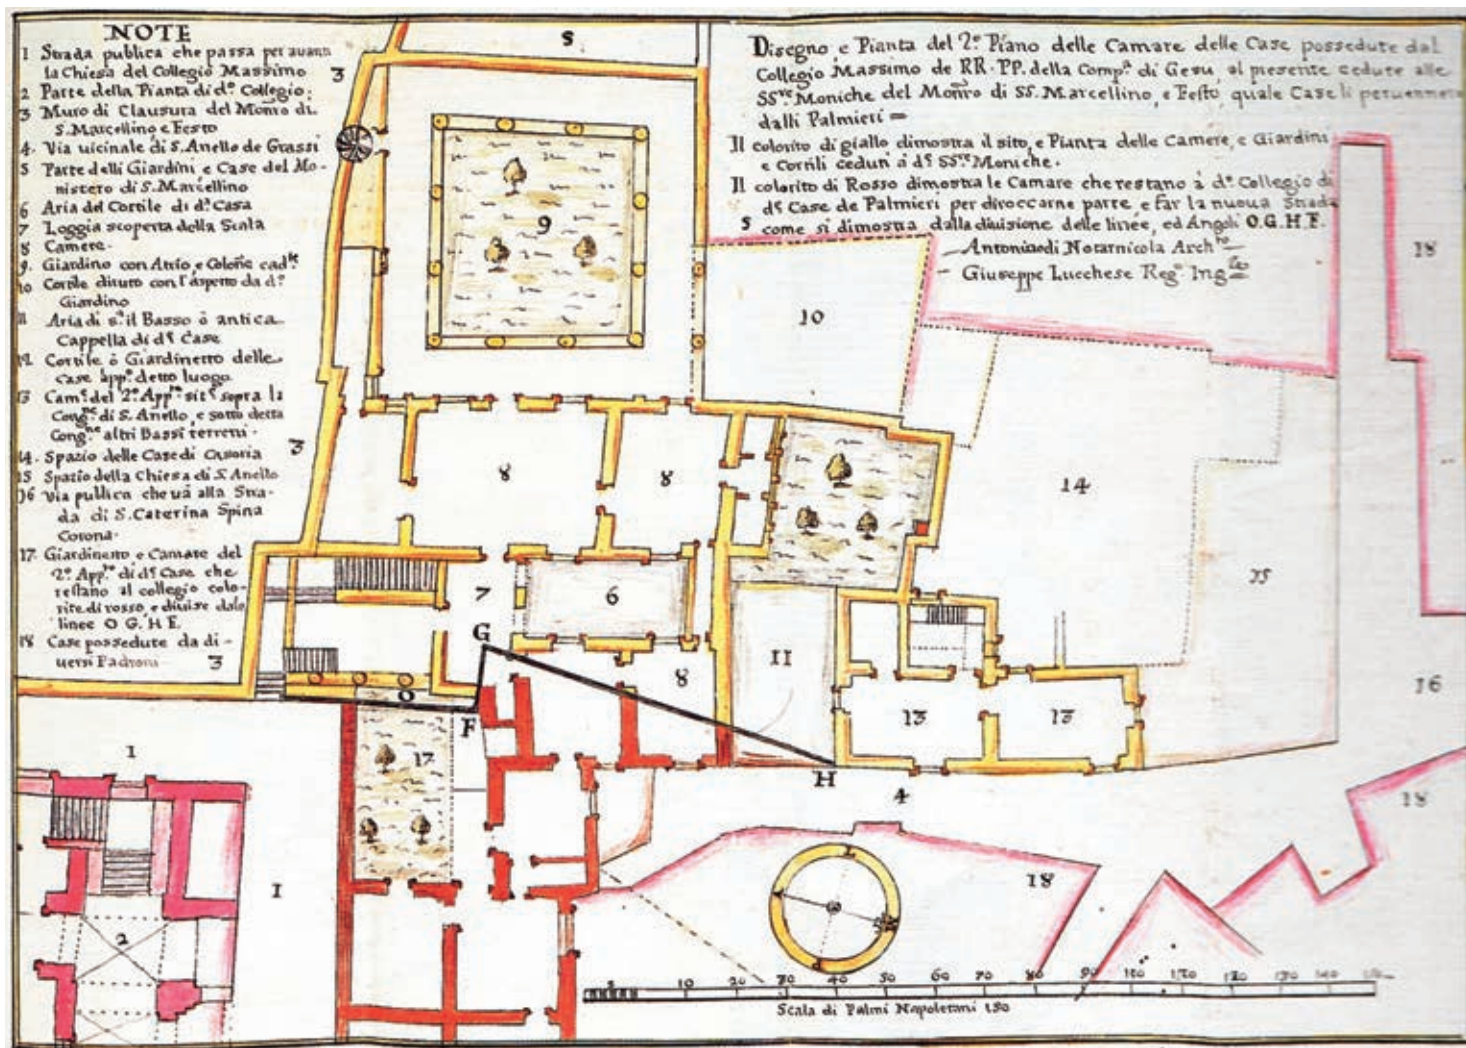 NOTE
1 Strada publica che passa per auanti
la Chiesa del Collegio Massimo
2 Parte della Pianta di d.º Collegio;
3 Muro di Clausura del Mon.ro di
S. Marcellino e Festo
4. Via uicinale di S. Anello de Grassi
5 Parte delli Giardini e Case del Mo-
nistero di S. Marcellino
6 Aria del Cortile di d.ª Casa
7 Loggia scoperta della Scala
8 Camere.
9. Giardino con Atrio, e Colone
10 Cortile con l'aspetto da d.º
Giardino
11 Aria di il Basso ò antica
Cappella di d.e Case
12 Cortile ò Giardinetto delle
case detto luogo
13 Cam.e del 2.º App.to sit.e sopra la
Cong.ne di S. Anello, e sotto detta
Cong.ne altri Bassi terreni.
14. Spazio delle Case di Casoria
15 Spazio della Chiesa di S. Anello
16 Via publica che uà alla Stra-
da di S. Caterina Spina
Corona.
17 Giardinetto e Camare del
2.º App.to di d.e Case che
restano al collegio colo-
rite di rosso, e diuise dale
linee O G. H F.
18 Case possedute da di-
uersi Padroni
Disegno e Pianta del 2.º Piano delle Camare delle Case possedute dal
Collegio Massimo de RR. PP. della Comp.ª di Gesu, al presente cedute alle
SS.re Moniche del Mon.ro di SS. Marcellino, e Festo, quale Case li peruennero
dalli Palmieri =
Il colorito di giallo dimostra il sito, e Pianta delle Camere, e Giardini
e Cortili ceduti à d.e SS.re Moniche.
Il colorito di Rosso dimostra le Camare che restano à d.º Collegio di
d.e Case de Palmieri per diroccarne parte e far la nuoua Strada
come si dimostra dalla diuisione delle linee, ed Angoli O. G. H. F.
Antonio di Notarnicola Arch.to
Giuseppe Lucchese Reg.º Ing.re
5
3
9
5
10
18
3
8
8
14
15
7
6
G
3
8
11
13
13
16
O
F
17
H
1
4
18
1
18
2
5 10 20 30 40 50 60 70 80 90 100 110 120 130 140 150
Scala di Palmi Napoletani 150